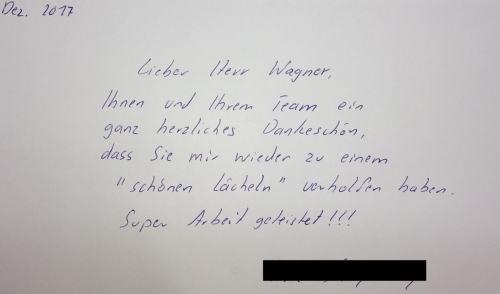 Dez. 2017
Lieber Herr Wagner,
Ihnen und Ihrem Team ein
ganz herzliches Dankeschön,
dass Sie mir wieder zu einem
"schönen Lächeln" verholfen haben.
Super Arbeit geleistet!!!